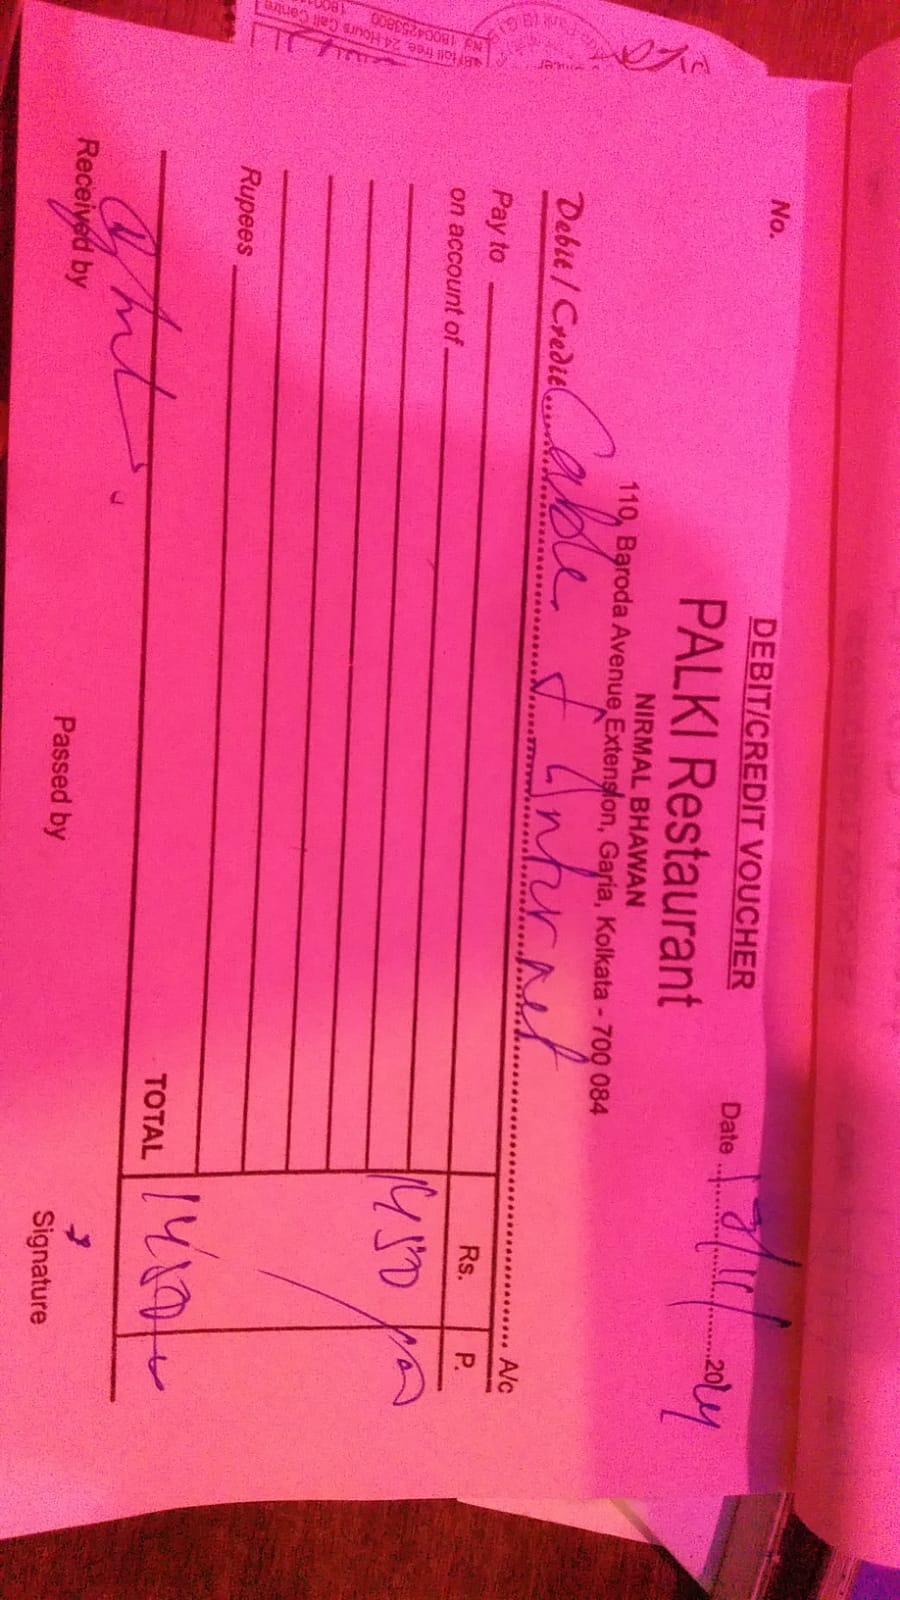 DEBIT/CREDIT VOUCHER
No.
PALKI Restaurant
Date
2024
NIRMAL BHAWAN
110, Baroda Avenue Extension, Garia, Kolkata - 700 084
Debit / Credit Cable & Internet A/c
Pay to Rs. P.
on account of
1450/00
Rupees
TOTAL 1450
Received by Passed by Signature
Toll free 24 Hours Call Centre
No. 18004253800